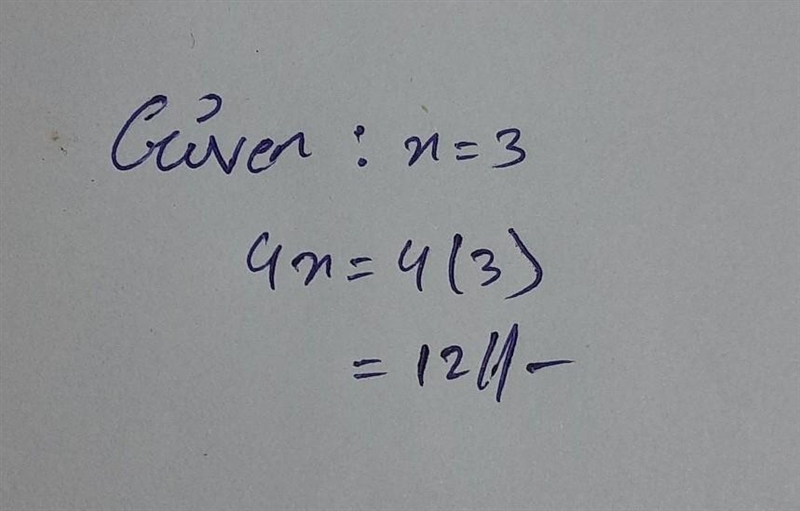 Given : x=3
4x=4(3)
=12//-